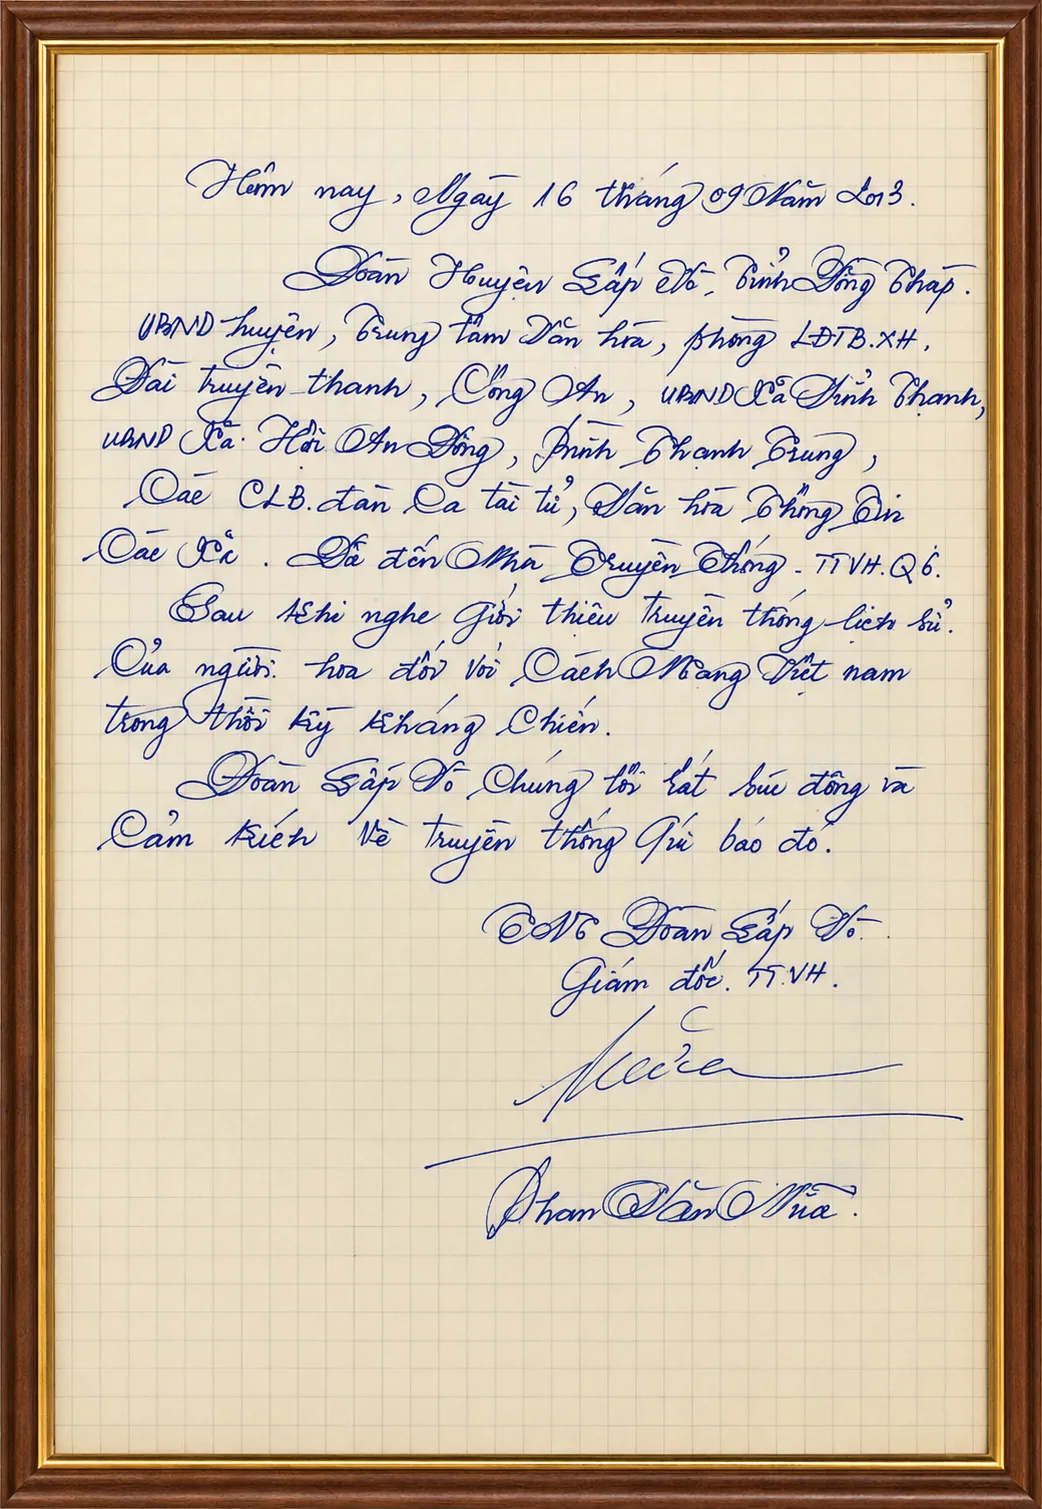 Hôm nay, Ngày 16 tháng 09 Năm 2013.
Đoàn Huyện Lấp Vò, Tỉnh Đồng Tháp.
UBND huyện, Trung tâm Văn hóa, phòng LĐTB.XH,
Đài truyền thanh, Công An, UBND Xã Định Thạnh,
UBND Xã Hội An Đông, Bình Thạnh Trung,
Các CLB. đàn Ca tài tử, Văn hóa Thông Tin
Các Xã. Đã đến Nhà Truyền Thống - TTVH. Q6.
Sau khi nghe Giới thiệu Truyền thống lịch sử.
Của người hoa đối với Cách Mạng Việt nam
trong thời kỳ kháng Chiến.
Đoàn Lấp Vò Chúng tôi rất xúc động và
Cảm kích Về truyền thống Quí báo đó.
Đoàn Lấp Vò.
Giám đốc. TT.VH.
Phan Văn